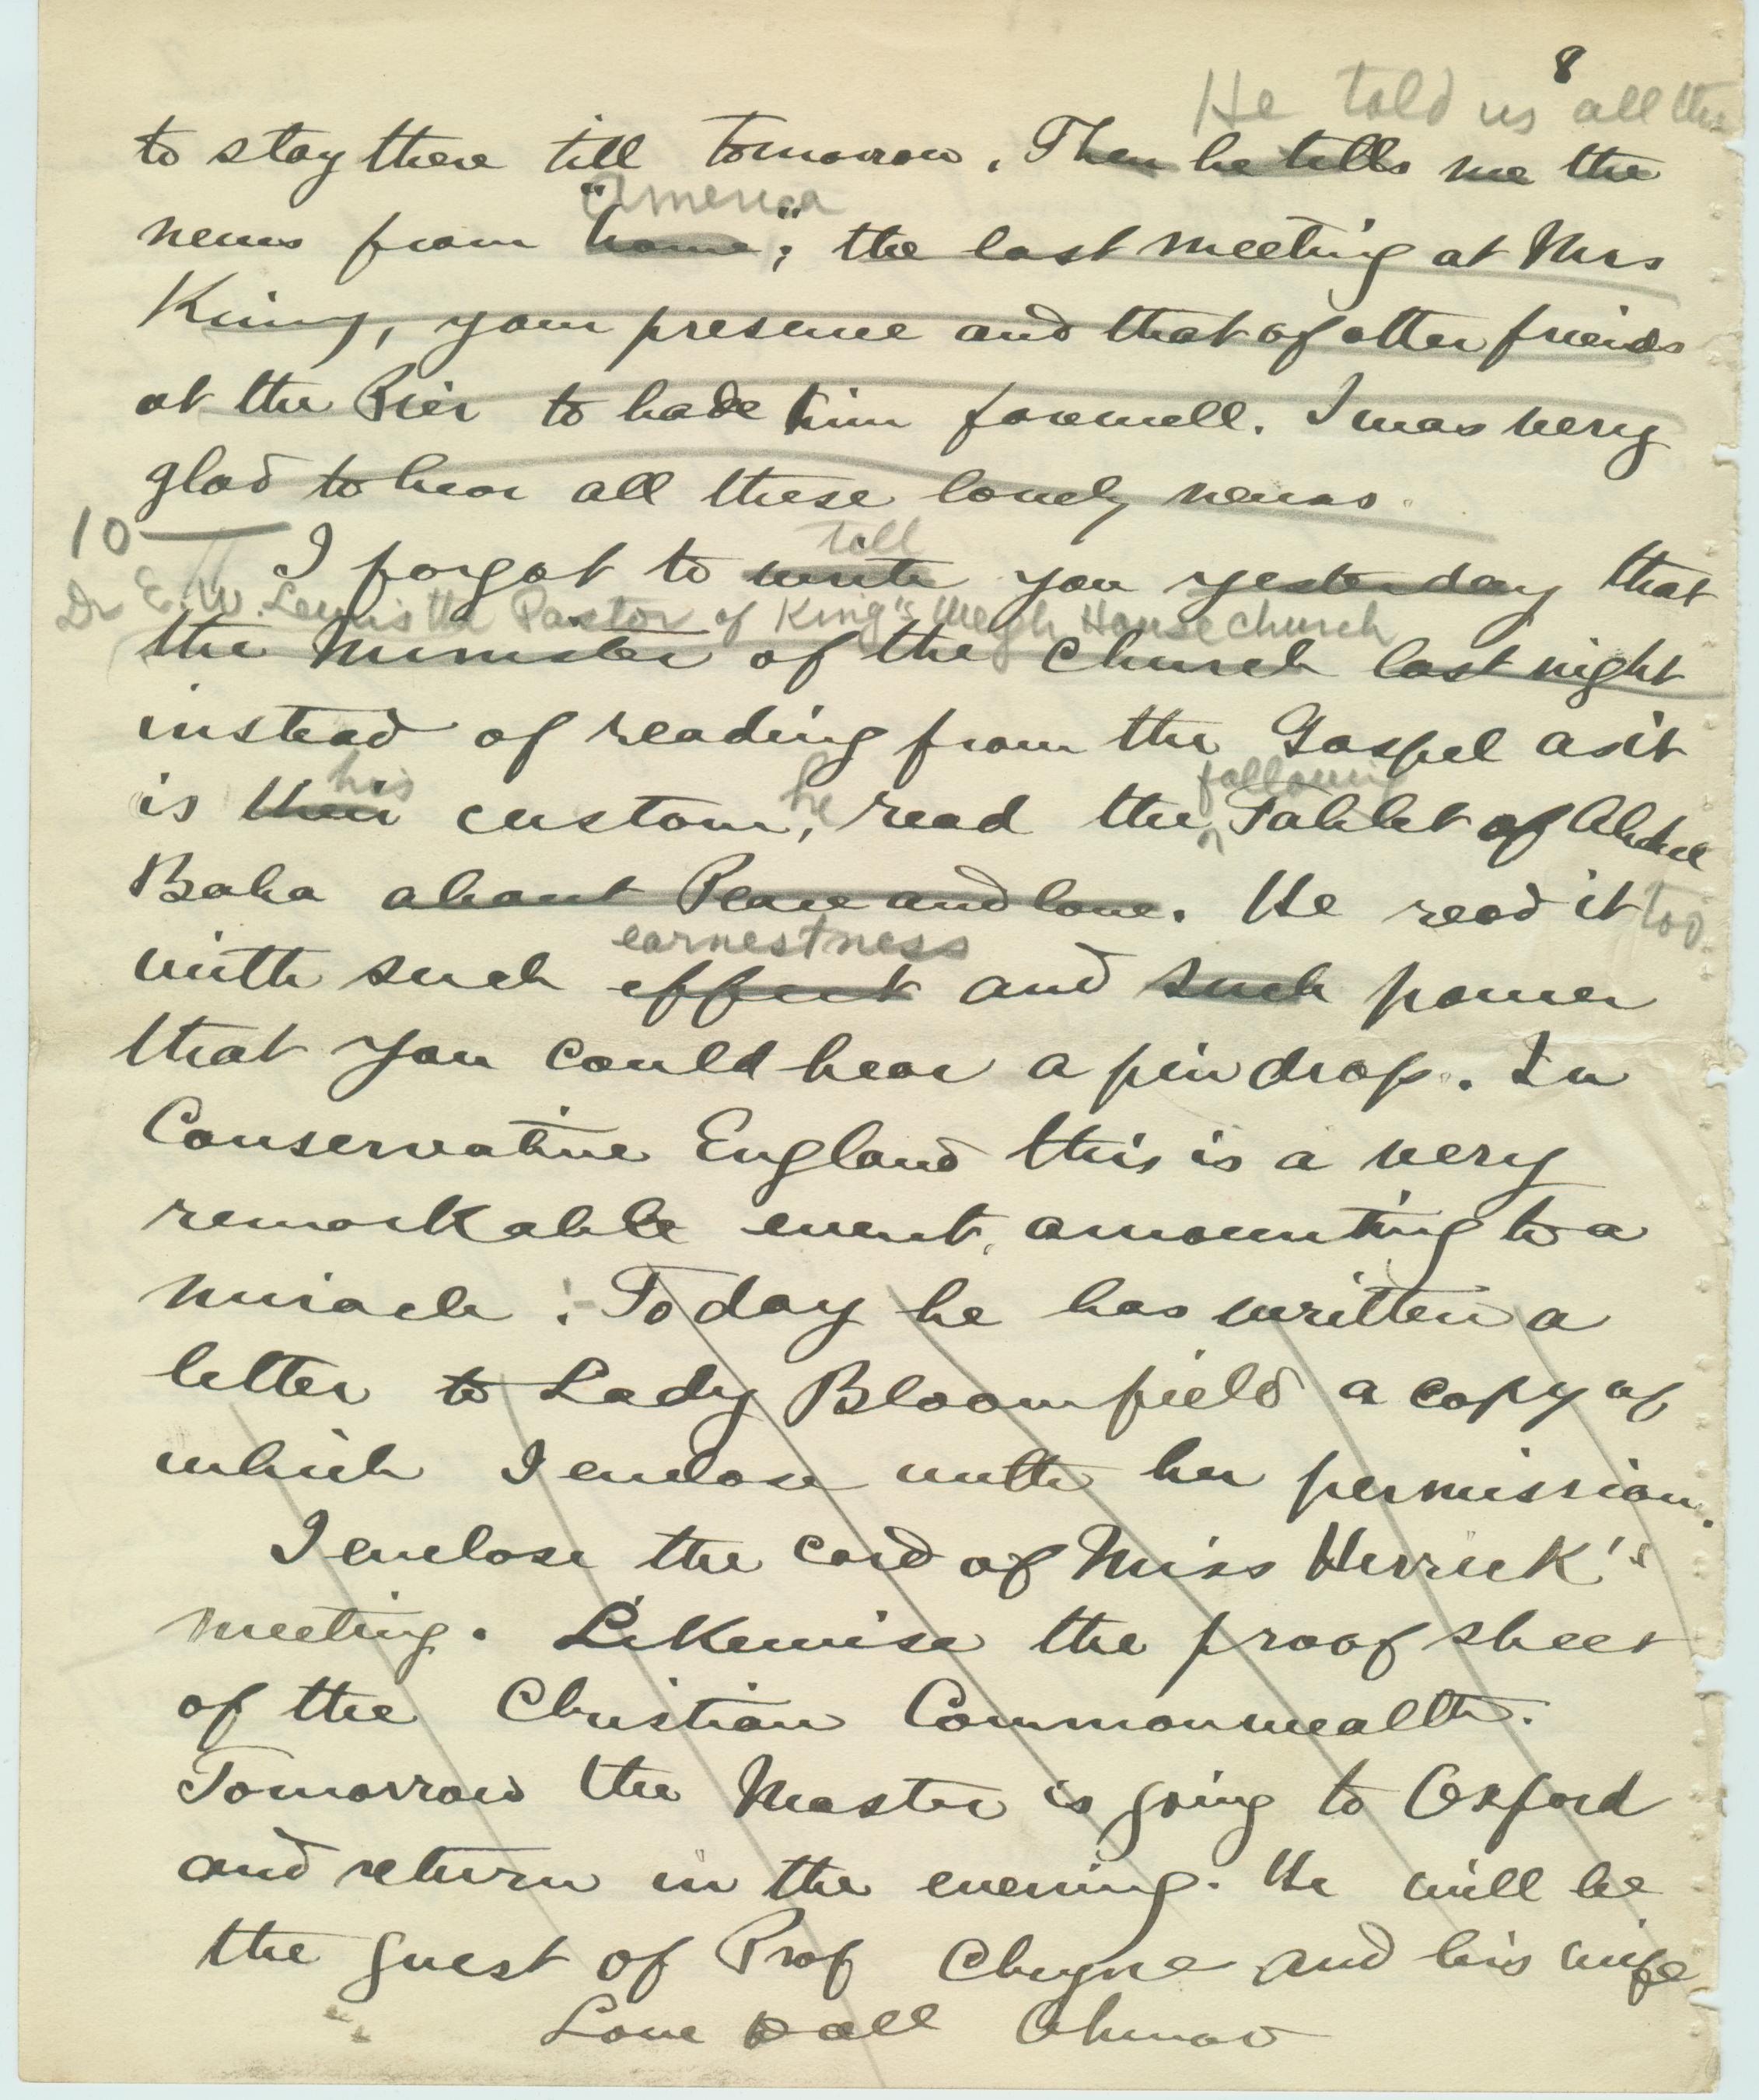 8
He told us all the
to stay there till tomorrow. Then he tells me the
America
news from "home"; the last meeting at Mrs
Kinny, your presence and that of other friends
at the Pier to bade him farewell. I was very
glad to hear all these lovely news.
10
tell
I forgot to write you yesterday that
Dr E. W. Lewis the Pastor of King's Weigh House church
the Minister of the Church last night
instead of reading from the Gospel as it
his he following
is their custom, read the Tablet of Abdul
Baha about Peace and love. He read it too
earnestness
with such effect and such power
that you could hear a pin drop. In
Conservative England this is a very
remarkable event, amounting to a
miracle. Today he has written a
letter to Lady Bloomfield a copy of
which I enclose with her permission.
I enclose the card of Miss Herrick's
meeting. Likewise the proof sheet
of the Christian Commonwealth.
Tomorrow the Master is going to Oxford
and return in the evening. He will be
the guest of Prof Cheyne and his wife
Love to all Ahmad